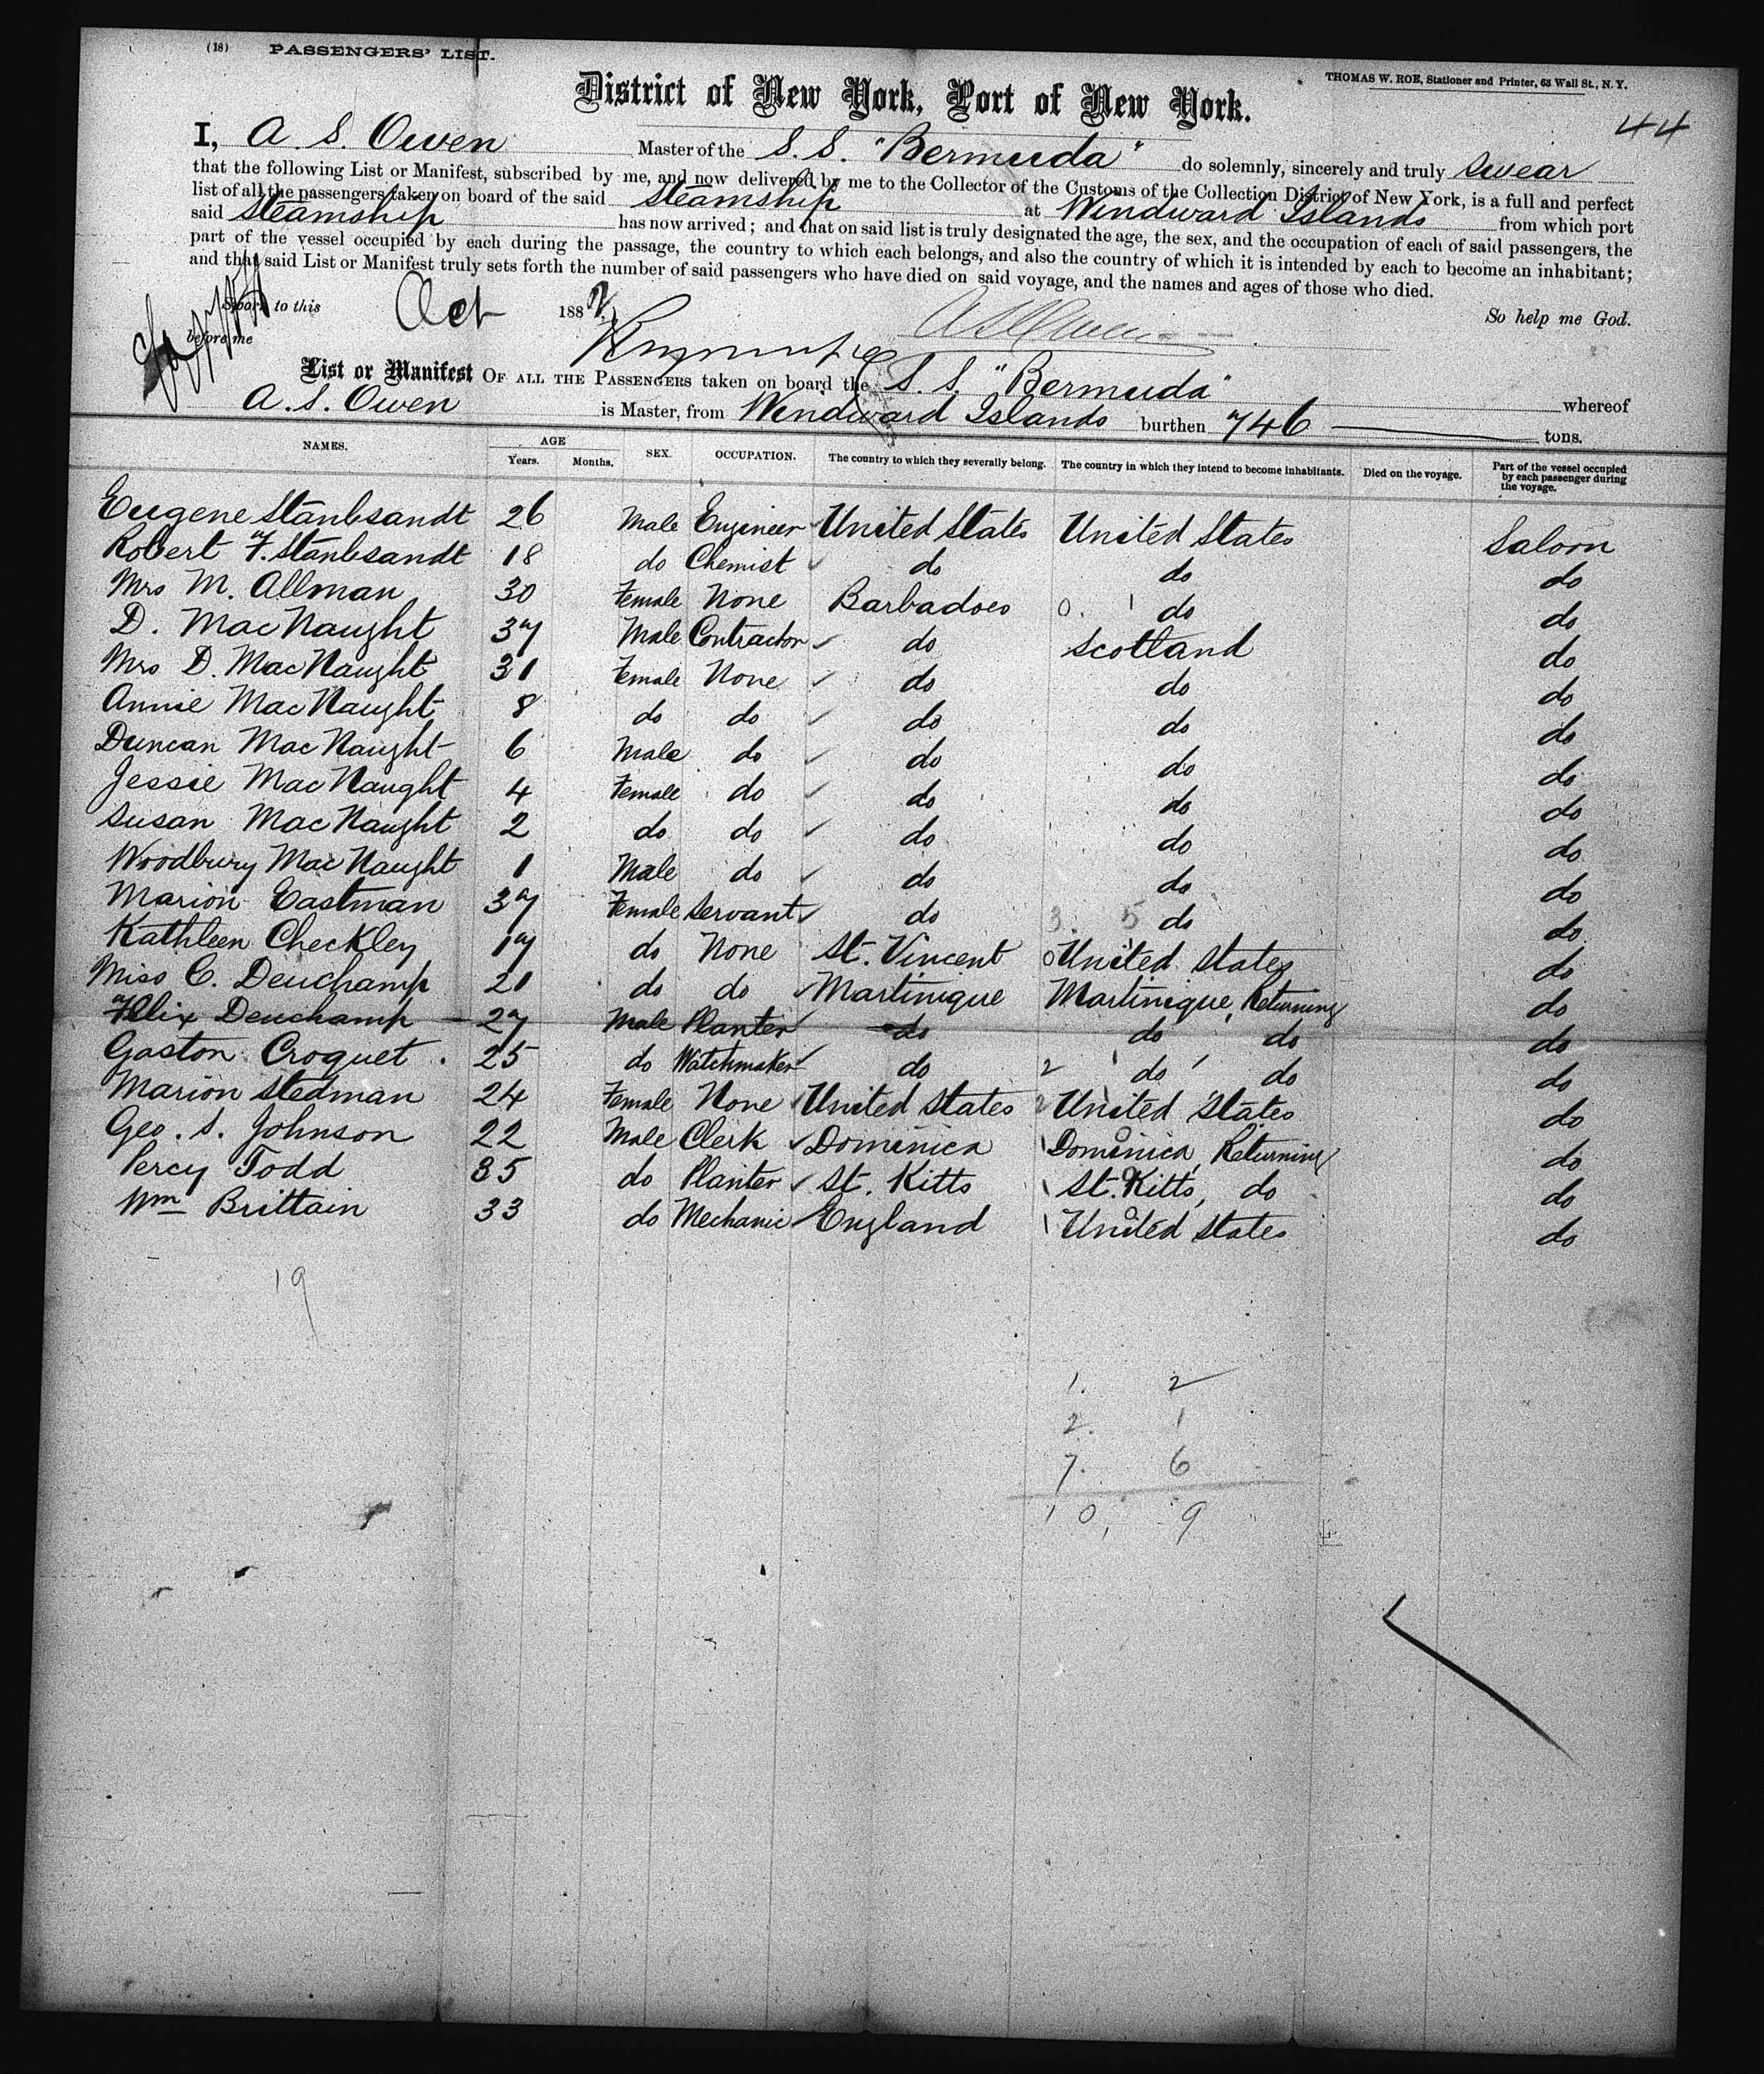 (18) PASSENGERS' LIST.
THOMAS W. ROE, Stationer and Printer, 63 Wall St., N. Y.
District of New York, Port of New York.
44
I, A. S. Owen Master of the S. S. "Bermuda" do solemnly, sincerely and truly swear
that the following List or Manifest, subscribed by me, and now delivered by me to the Collector of the Customs of the Collection District of New York, is a full and perfect
list of all the passengers taken on board of the said Steamship at Windward Islands from which port
said Steamship has now arrived; and that on said list is truly designated the age, the sex, and the occupation of each of said passengers, the
part of the vessel occupied by each during the passage, the country to which each belongs, and also the country of which it is intended by each to become an inhabitant;
and that said List or Manifest truly sets forth the number of said passengers who have died on said voyage, and the names and ages of those who died.
Sworn to this Oct 1882 So help me God.
before me
List or Manifest OF ALL THE PASSENGERS taken on board the S. S. "Bermuda" whereof
A. S. Owen is Master, from Windward Islands burthen 746 tons.
NAMES. AGE Years. Months. SEX. OCCUPATION. The country to which they severally belong. The country in which they intend to become inhabitants. Died on the voyage. Part of the vessel occupied by each passenger during the voyage.
Eugene 26 Male Engineer United States United States Saloon
Robert F. 18 do Chemist do do do
Mrs M. Allman 30 Female None Barbadoes 0. 1 do do
D. MacNaught 37 Male Contractor do Scotland do
Mrs D. MacNaught 31 Female None do do do
Annie MacNaught 8 do do do do do
Duncan MacNaught 6 Male do do do do
Jessie MacNaught 4 Female do do do do
Susan MacNaught 2 do do do do do
Woodbury MacNaught 1 Male do do do do
Marion Eastman 37 Female Servant do 3. 5 do do
Kathleen Checkley 17 do None St. Vincent United States do
Miss C. Deuchamp 21 do do Martinique Martinique, Returning do
Felix Deuchamp 27 Male Planter do do do do
Gaston Croquet 25 do Watchmaker do 2 1 do do do
Marion Stedman 24 Female None United States United States do
Geo. S. Johnson 22 Male Clerk Dominica Dominica, Returning do
Percy Todd 35 do Planter St. Kitts St. Kitts, do do
Wm Brittain 33 do Mechanic England United States do
19
1. 2
2. 1
7. 6
10, 9